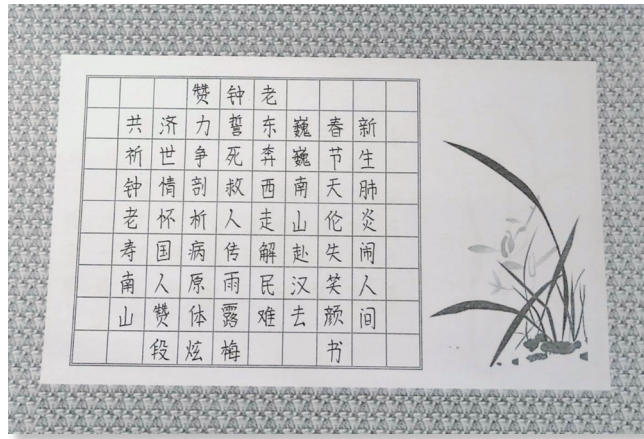 赞钟老
新生肺炎闹人间
春节天伦失笑颜
巍巍南山赴汉去
东奔西走解民难
誓死救人传雨露
力争剖析病原体
济世情怀国人赞
共祈钟老寿南山
段炫梅 书